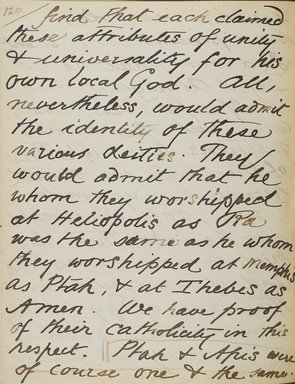 120
find that each claimed
these attributes of unity
& universality for his
own local God. All,
nevertheless, would admit
the identity of these
various deities. They
would admit that he
whom they worshipped
at Heliopolis as Ra
was the same as he whom
they worshipped at Memphis
as Ptah, & at Thebes as
Amen. We have proof
of their catholicity in this
respect. Ptah & Apis were
of course one & the same.